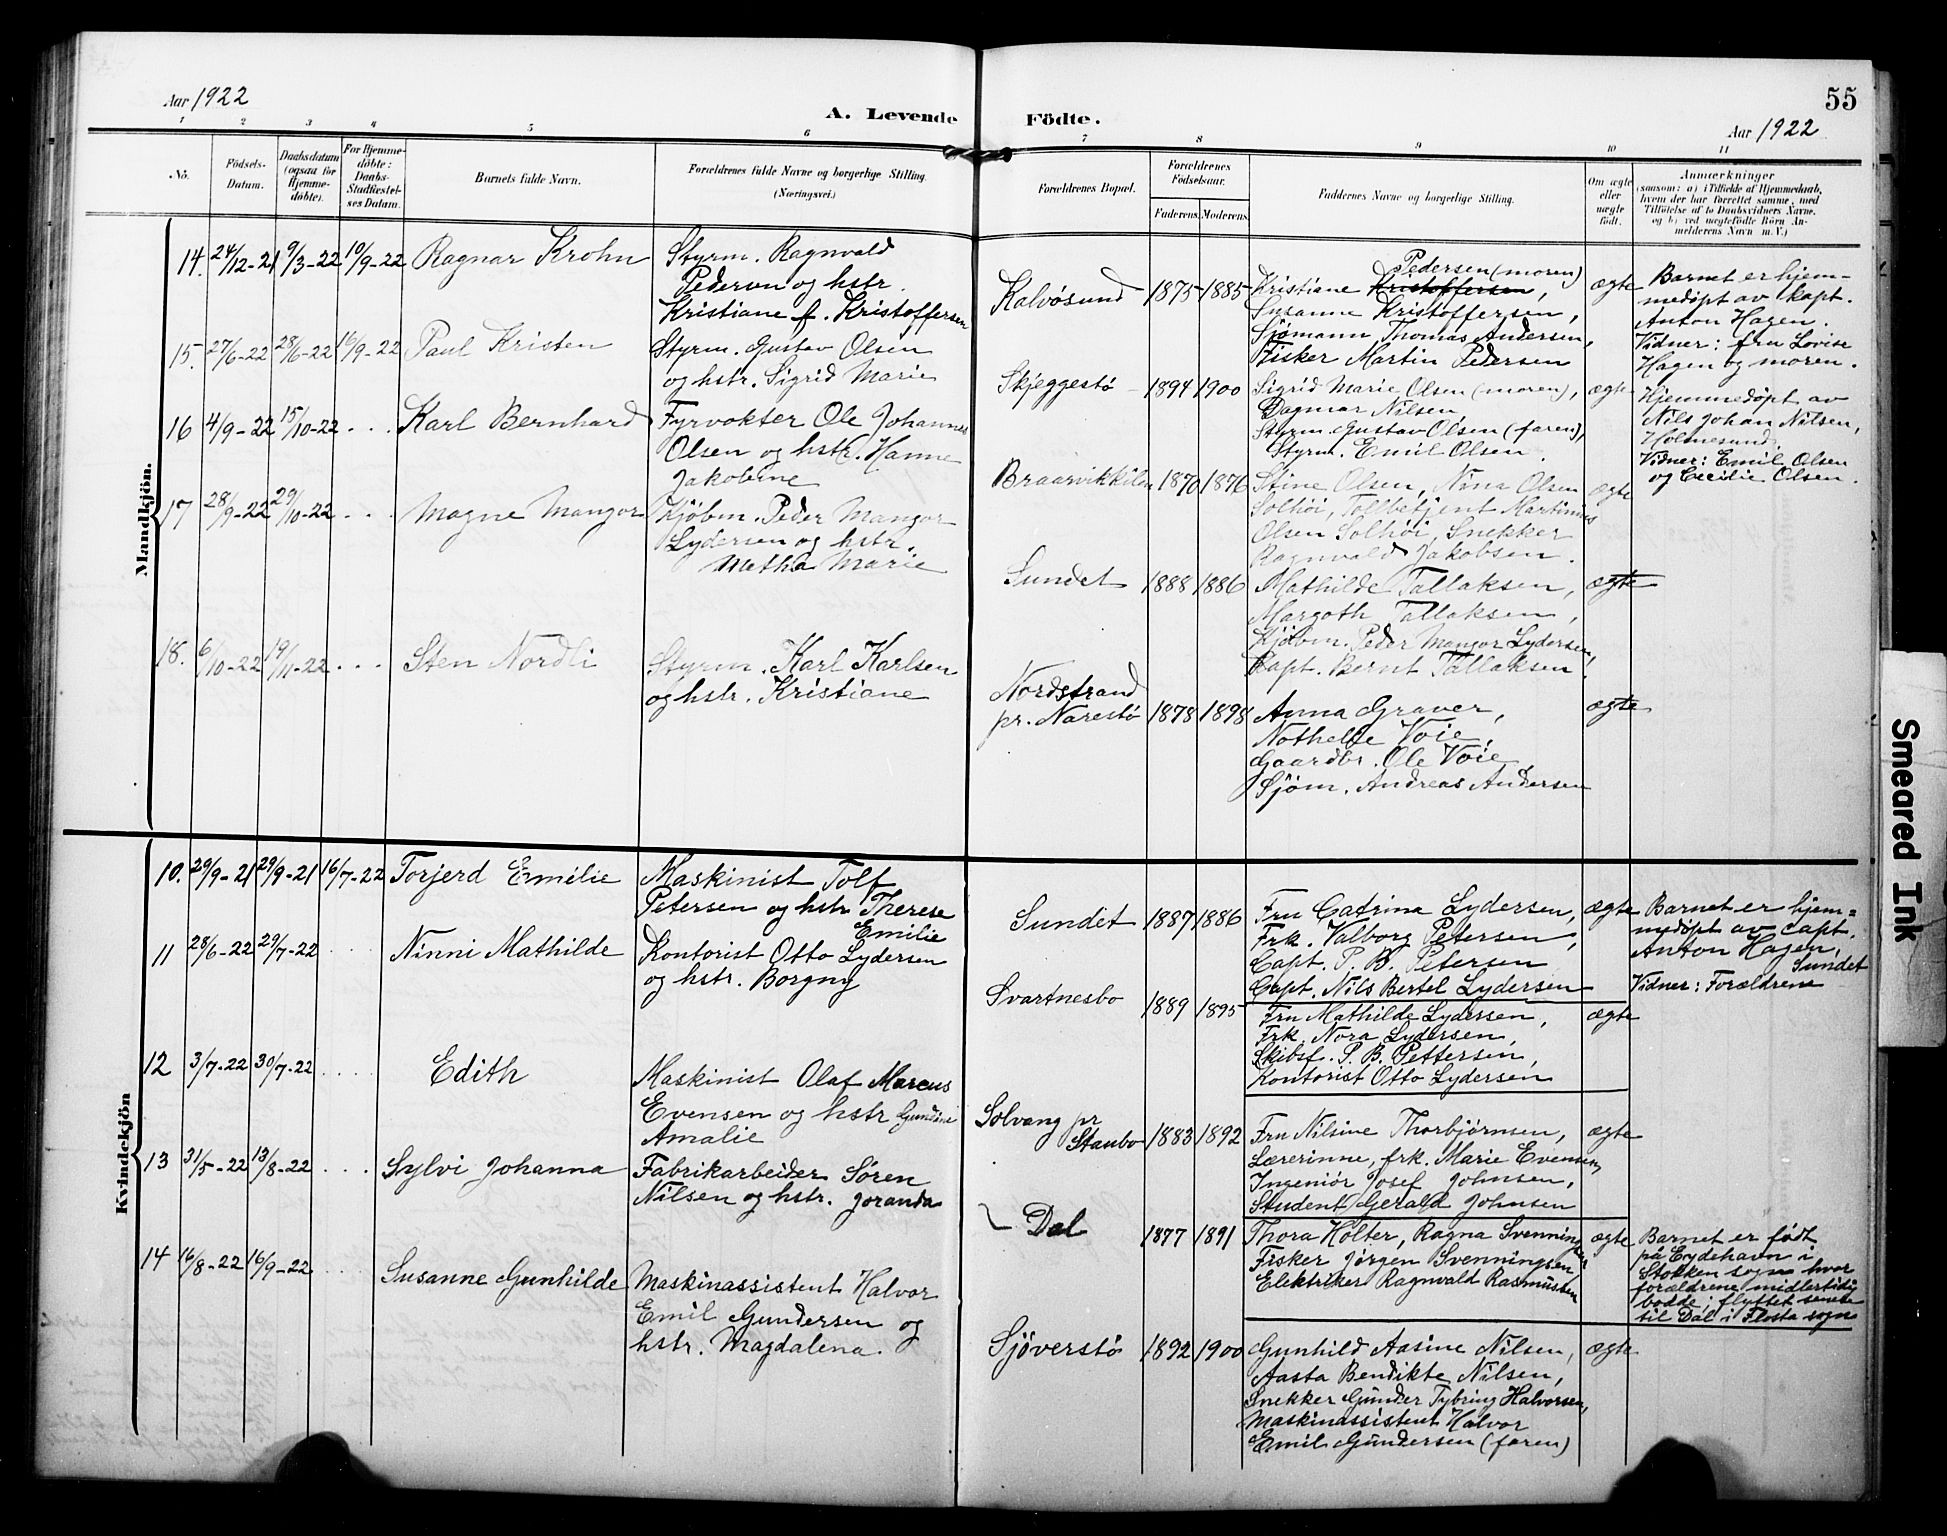 55
Aar 1922
A. Levende Födte.
Aar 1922
1 2 3 4 5 6 7 8 9 10 11
No.
Födsels-
Datum.
Daabsdatum
(ogsaa for
Hjemme-
döbte).
For Hjemme-
döbte:
Daabs-
Stadfæstel-
ses Datum.
Barnets fulde Navn.
Forældrenes fulde Navne og borgerlige Stilling.
(Næringsvei.)
Forældrenes Bopæl.
Forældrenes
Födselsaar.
Faderens. Moderens.
Faddernes Navne og borgerlige Stilling.
Om ægte
eller
uægte
födt.
Anmærkninger
(saasom: a) i Tilfælde af Hjemmedaab,
hvem der har forrettet samme, med
Tilföielse af to Daabsvidners Navne,
og b) ved uægtefödte Börn An-
melderens Navn m. V.)
Mandkjön.
14. 24/12-21 9/3-22 10/9-22 Ragnar Krohn
Styrm. Ragnvald
Pedersen og hstr.
Kristiane f. Kristoffersen
Kalvösund 1875 1885
Pedersen (moren)
Kristiane Kristoffersen,
Susanne Kristoffersen,
Sjömann Thomas Andersen,
Fisker Martin Pedersen
ægte
Barnet er hjem-
medöpt av kapt.
Anton Hagen.
Vidner: fru Lovise
Hagen og moren.
15. 27/6-22 28/6-22 16/9-22 Paul Kristen
Styrm. Gustav Olsen
og hstr. Sigrid Marie
Skjeggestö 1894 1900
Sigrid Marie Olsen (moren),
Dagmar Nilsen,
Styrm. Gustav Olsen (faren),
Styrm. Emil Olsen.
ægte
Hjemmedöpt av
Nils Johan Nilsen,
Holmesund.
Vidner: Emil Olsen
og Cecilie Olsen.
16 4/9-22 15/10-22 . . . Karl Bernhard
Fyrvokter Ole Johannes
Olsen og hstr. Hanne
Jakobine
Braarvikkilen 1870 1876
Stine Olsen, Nina Olsen
Solhöi, Tollbetjent Martinius
Olsen Solhöi, Snekker
Ragnvald Jakobsen.
ægte
17 28/9-22 29/10-22 . . . Magne Mangor
Kjöbm. Peder Mangor
Lydersen og hstr.
Metha Marie
Sundet 1888 1886
Mathilde Tallaksen,
Margoth Tallaksen,
Kjöbm. Peder Mangor Lydersen,
Capt. Bernt Tallaksen.
ægte
18. 6/10-22 19/11-22 . . . Sten Nordli
Styrm. Karl Karlsen
og hstr. Kristiane
Nordstrand
pr. Narestö 1878 1898
Anna Graver,
Nothelfe Voie,
Gaardbr. Ole Voie,
Sjöm. Andreas Andersen
ægte
Kvindekjön
10. 29/9-21 29/9-21 16/7-22 Torjerd Emelie
Maskinist Tolf
Petersen og hstr Therese
Emilie
Sundet 1887 1886
Fru Catrina Lydersen,
Frk. Valborg Petersen,
Capt. P. B. Petersen
Capt. Nils Bertel Lydersen
ægte
Barnet er hjem=
medöpt av Capt.
Anton Hagen,
Sundet
Vidner: Forældrene
11 28/6-22 29/7-22 . . . Ninni Mathilde
Kontorist Otto Lydersen
og hstr. Borgny
Svartnesbo 1889 1895
Fru Mathilde Lydersen,
Frk. Nora Lydersen,
Skibsf. P. B. Pettersen,
Kontorist Otto Lydersen
ægte
12 3/7-22 30/7-22 . . . Edith
Maskinist Olaf Marcus
Evensen og hstr Gundine
Amalie
Solvang pr
Staubo 1883 1892
Fru Nilsine Thorbjørnsen,
Lærerinne, frk. Marie Evensen,
Ingeniør Josef Johnsen,
Student Gerald Johnsen
ægte
13 31/5-22 13/8-22 . . . Sylvi Johanna
Fabrikarbeider Søren
Nilsen og hstr. Joranda
Dal 1877 1891
Thora Holter, Ragna Svenningsen
Fisker Jørgen Svenningsen
Elektriker Ragnvald Rasmussen
ægte
Barnet er født
på Eydehavn i
Stokken sogn hvor
forældrene midlertidig
bodde, flyttet senere
til Dal i Flosta sogn
14 16/8-22 16/9-22 . . . Susanne Gunhilde
Maskinassistent Halvor
Emil Gundersen og
hstr. Magdalena.
Sjöverstö 1892 1900
Gunhild Aasine Nilsen,
Aasta Bendikte Nilsen,
Snekker Gunder Tybring Halvorsen,
Maskinassistent Halvor
Emil Gundersen (faren)
ægte
Smeared Ink